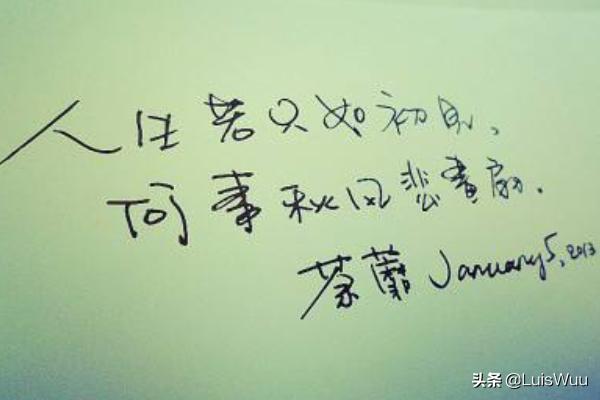 人生若只如初见、
何事秋风悲畫扇.
荼蘼 January 5, 2013
头条 @LuisWuu